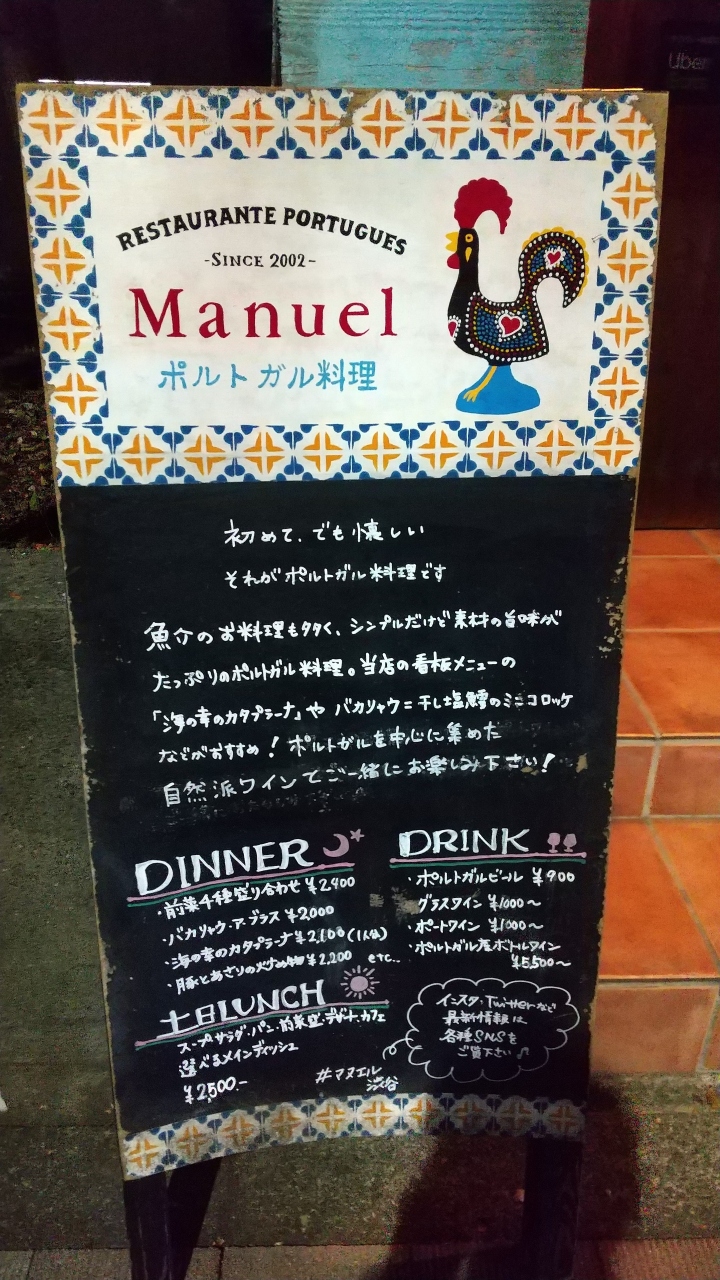 Uber
RESTAURANTE PORTUGUES
-SINCE 2002-
Manuel
ポルトガル料理
初めて、でも懐しい
それがポルトガル料理です
魚介のお料理も多く、シンプルだけど素材の旨味が
たっぷりのポルトガル料理。当店の看板メニューの
「海の幸のカタプラーナ」や バカリャウ=干し塩鱈のミニコロッケ
などがおすすめ！ポルトガルを中心に集めた
自然派ワインでご一緒にお楽しみ下さい！
DINNER
・前菜4種盛り合わせ ¥2,400
・バカリャウ・ア・ブラス ¥2,000
・海の幸のカタプラーナ ¥2,100 (1人分)
・豚とあさりの炒め物 ¥2,200 etc...
DRINK
・ポルトガルビール ¥900
グラスワイン ¥1000〜
・ポートワイン ¥1000〜
・ポルトガル産ボトルワイン
¥5,500〜
土日LUNCH
スープ・サラダ・パン・前菜盛・デザート・カフェ
選べるメインディッシュ
¥2,500-
#マヌエル
渋谷
インスタ・Twitterなど
最新情報は
各種SNSを
ご覧下さい♪